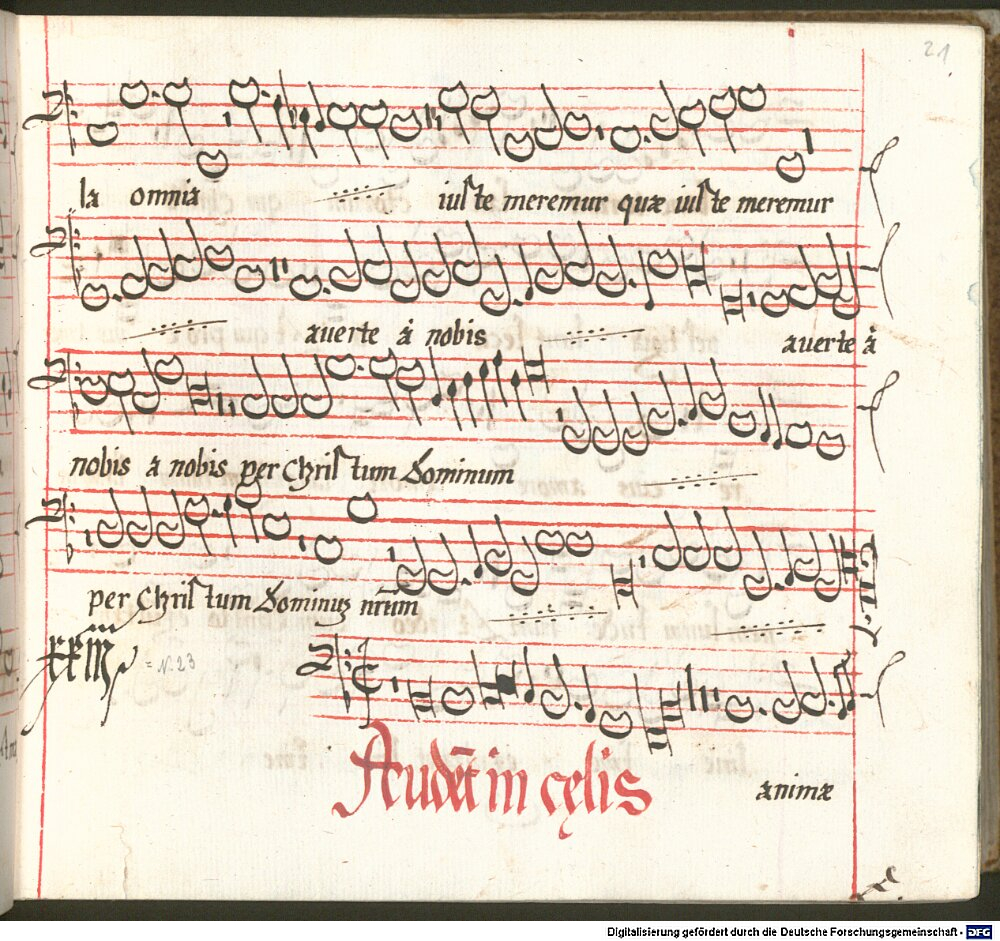 21
la omnia iuste meremur quæ iuste meremur
auerte à nobis auerte à
nobis a nobis per Christum Dominum
per Christum Dominuz nr̄um
= N. 23
Audēt in cęlis
animæ
Digitalisierung gefördert durch die Deutsche Forschungsgemeinschaft - DFG